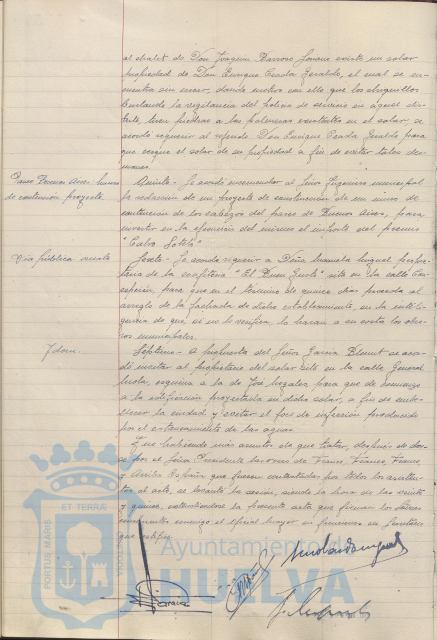 al chalet de Don Joaquin Barroso existe un solar
propiedad de Don Enrique Ceada Geraldo, el cual se en-
cuentra sin cercar, dando motivo con ello que los chiquillos
burlando la vigilancia del policia de servicio en aquel dis-
trito, tiren piedras a las palmeras existentes en el solar, se
acordó requerir al referido Don Enrique Ceada Geraldo para
que cerque el solar de su propiedad a fin de evitar tales des-
manes.
Paseo Buenos Aires: muros
de contencion proyecto.
Quinto.- Se acordó encomendar al Señor Ingeniero municipal
la redacción de un proyecto de construccion de un muro de
contencion de los cabezos del paseo de Buenos Aires, para
invertir en la ejecución del mismo el importe del premio
"Calvo Sotelo"
Via pública ornato
Sexto.- Se acordó requerir a Doña Manuela Miguel propie-
taria de la "El Buen Gusto" sita en la calle Con-
cepción, para que en el término de quince dias proceda al
arreglo de la fachada de dicho establecimiento, en la inteli-
gencia de que, si no lo verifica, lo harán a su costa los obre-
ros municipales.
Idem.
Séptimo.- A propuesta del Señor Garcia se acor-
dó invitar al propietario del solar sito en la calle General
Mola, esquina a la de José Nogales para que de comienzo
a la edificación proyectada en dicho solar, a fin de embe-
llecer la ciudad y evitar el foco de infección producido
por el estancamiento de las aguas.
Y no habiendo más asuntos de que tratar, despues de dar-
se por el Señor Presidente las voces de Franco, Franco, Franco
y Arriba España que fueron contestadas por todos los asisten-
tes al acto, se levantó la sesión, siendo la hora de las veinte
y quince, extendiéndose la presente acta que firman los Señores
concurrentes conmigo el Oficial Mayor en funciones de Secretario
que certifico.
PORTUS MARIS
ET TERRÆ
Ayuntamiento de
HUELVA